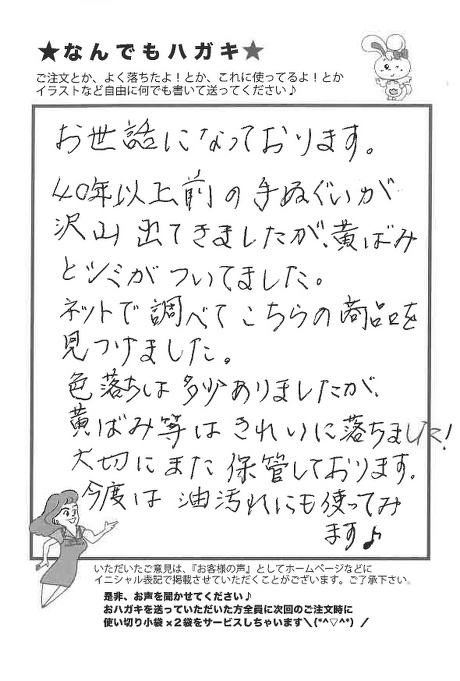 ★なんでもハガキ★
ご注文とか、よく落ちたよ！とか、これに使ってるよ！とか
イラストなど自由に何でも書いて送ってください♪
お世話になっております。
40年以上前の手ぬぐいが
沢山出てきましたが、黄ばみ
とシミがついてました。
ネットで調べてこちらの商品を
見つけました。
色落ちは多少ありましたが、
黄ばみ等はきれいに落ちました！
大切にまた保管しております。
今度は油汚れにも使ってみ
ます♪
いただいたご意見は、『お客様の声』としてホームページなどに
イニシャル表記で掲載させていただくことがございます。ご了承下さい。
是非、お声を聞かせてください♪
おハガキを送っていただいた方全員に次回のご注文時に
使い切り小袋×2袋をサービスしちゃいます＼(*^▽^*)／